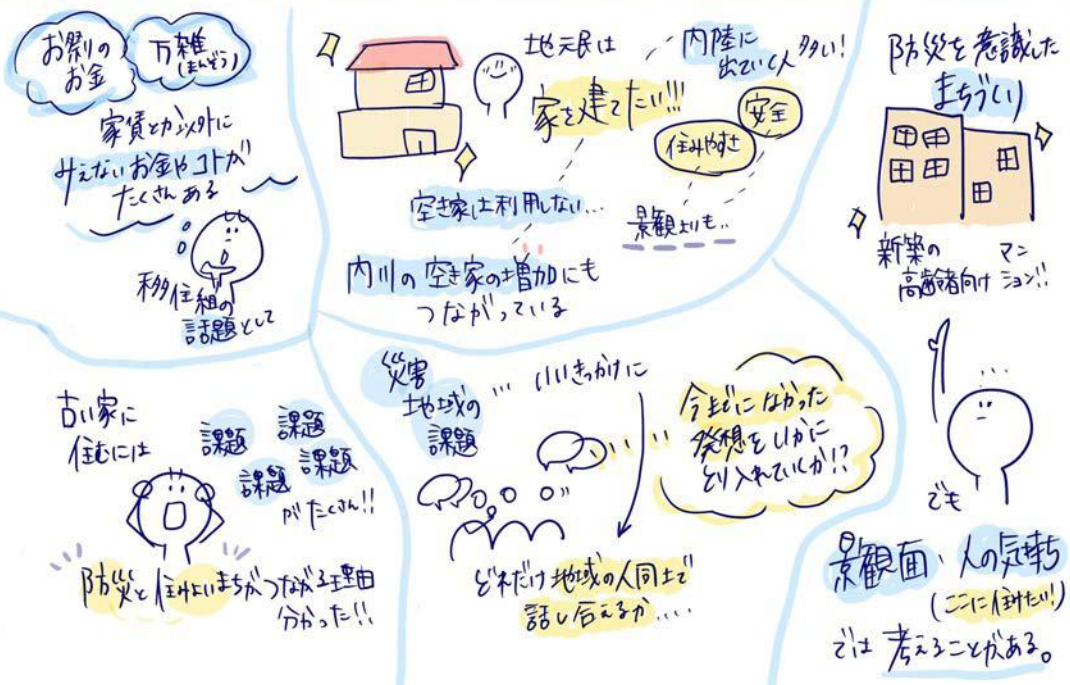 お祭りの
お金
万雑
(まんぞう)
家賃とか以外に
みえないお金やコトが
たくさんある
移住組の
話題として
地元民は
家を建てたい!!!
内陸に
出ていく人多い!
安全
住みやすさ
景観よりも..
空き家は利用しない...
内川の空き家の増加にも
つながっている
防災を意識した
まちづくり
新築の
高齢者向け
マン
ション!!
古い家に
住むには
課題
課題
課題
課題
がたくさん!!
防災と住みよいまちがつながる理由
分かった!!
災害
地域の
課題
... いいきっかけに
今までになかった
発想をいかに
とり入れていくか!?
どれだけ地域の人同士で
話し合えるか....
...
でも
景観面・人の気持ち
(ここに住みたい!)
では考えることがある。